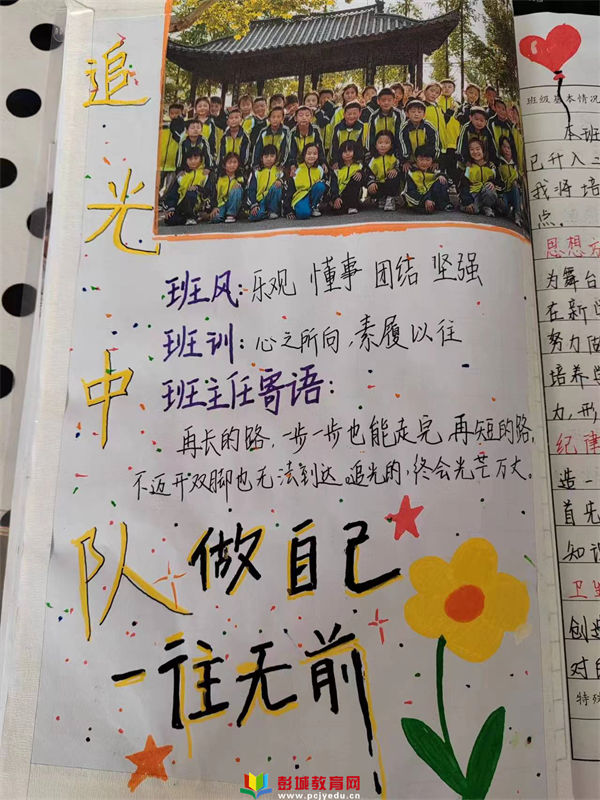 追光中队
班风:乐观 懂事 团结 坚强
班训:心之所向,素履以往
班主任寄语:
再长的路,一步一步也能走完,再短的路,
不迈开双脚也无法到达。追光的,终会光芒万丈。
做自己
一往无前
班级基本情况
本班
已升入三
我将培
点。
思想方
为舞台
在新
努力做
培养学
力,形
纪律
造一
首先
知识
卫生
创造
对自
特殊
彭城教育网
www.pcjyedu.cn